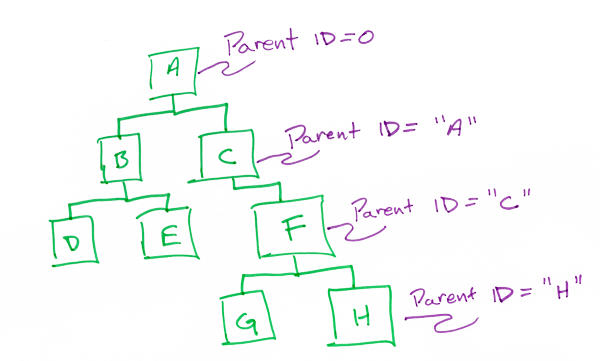 A
Parent ID=0
B
C
Parent ID= "A"
D
E
F
Parent ID="C"
G
H
Parent ID="H"